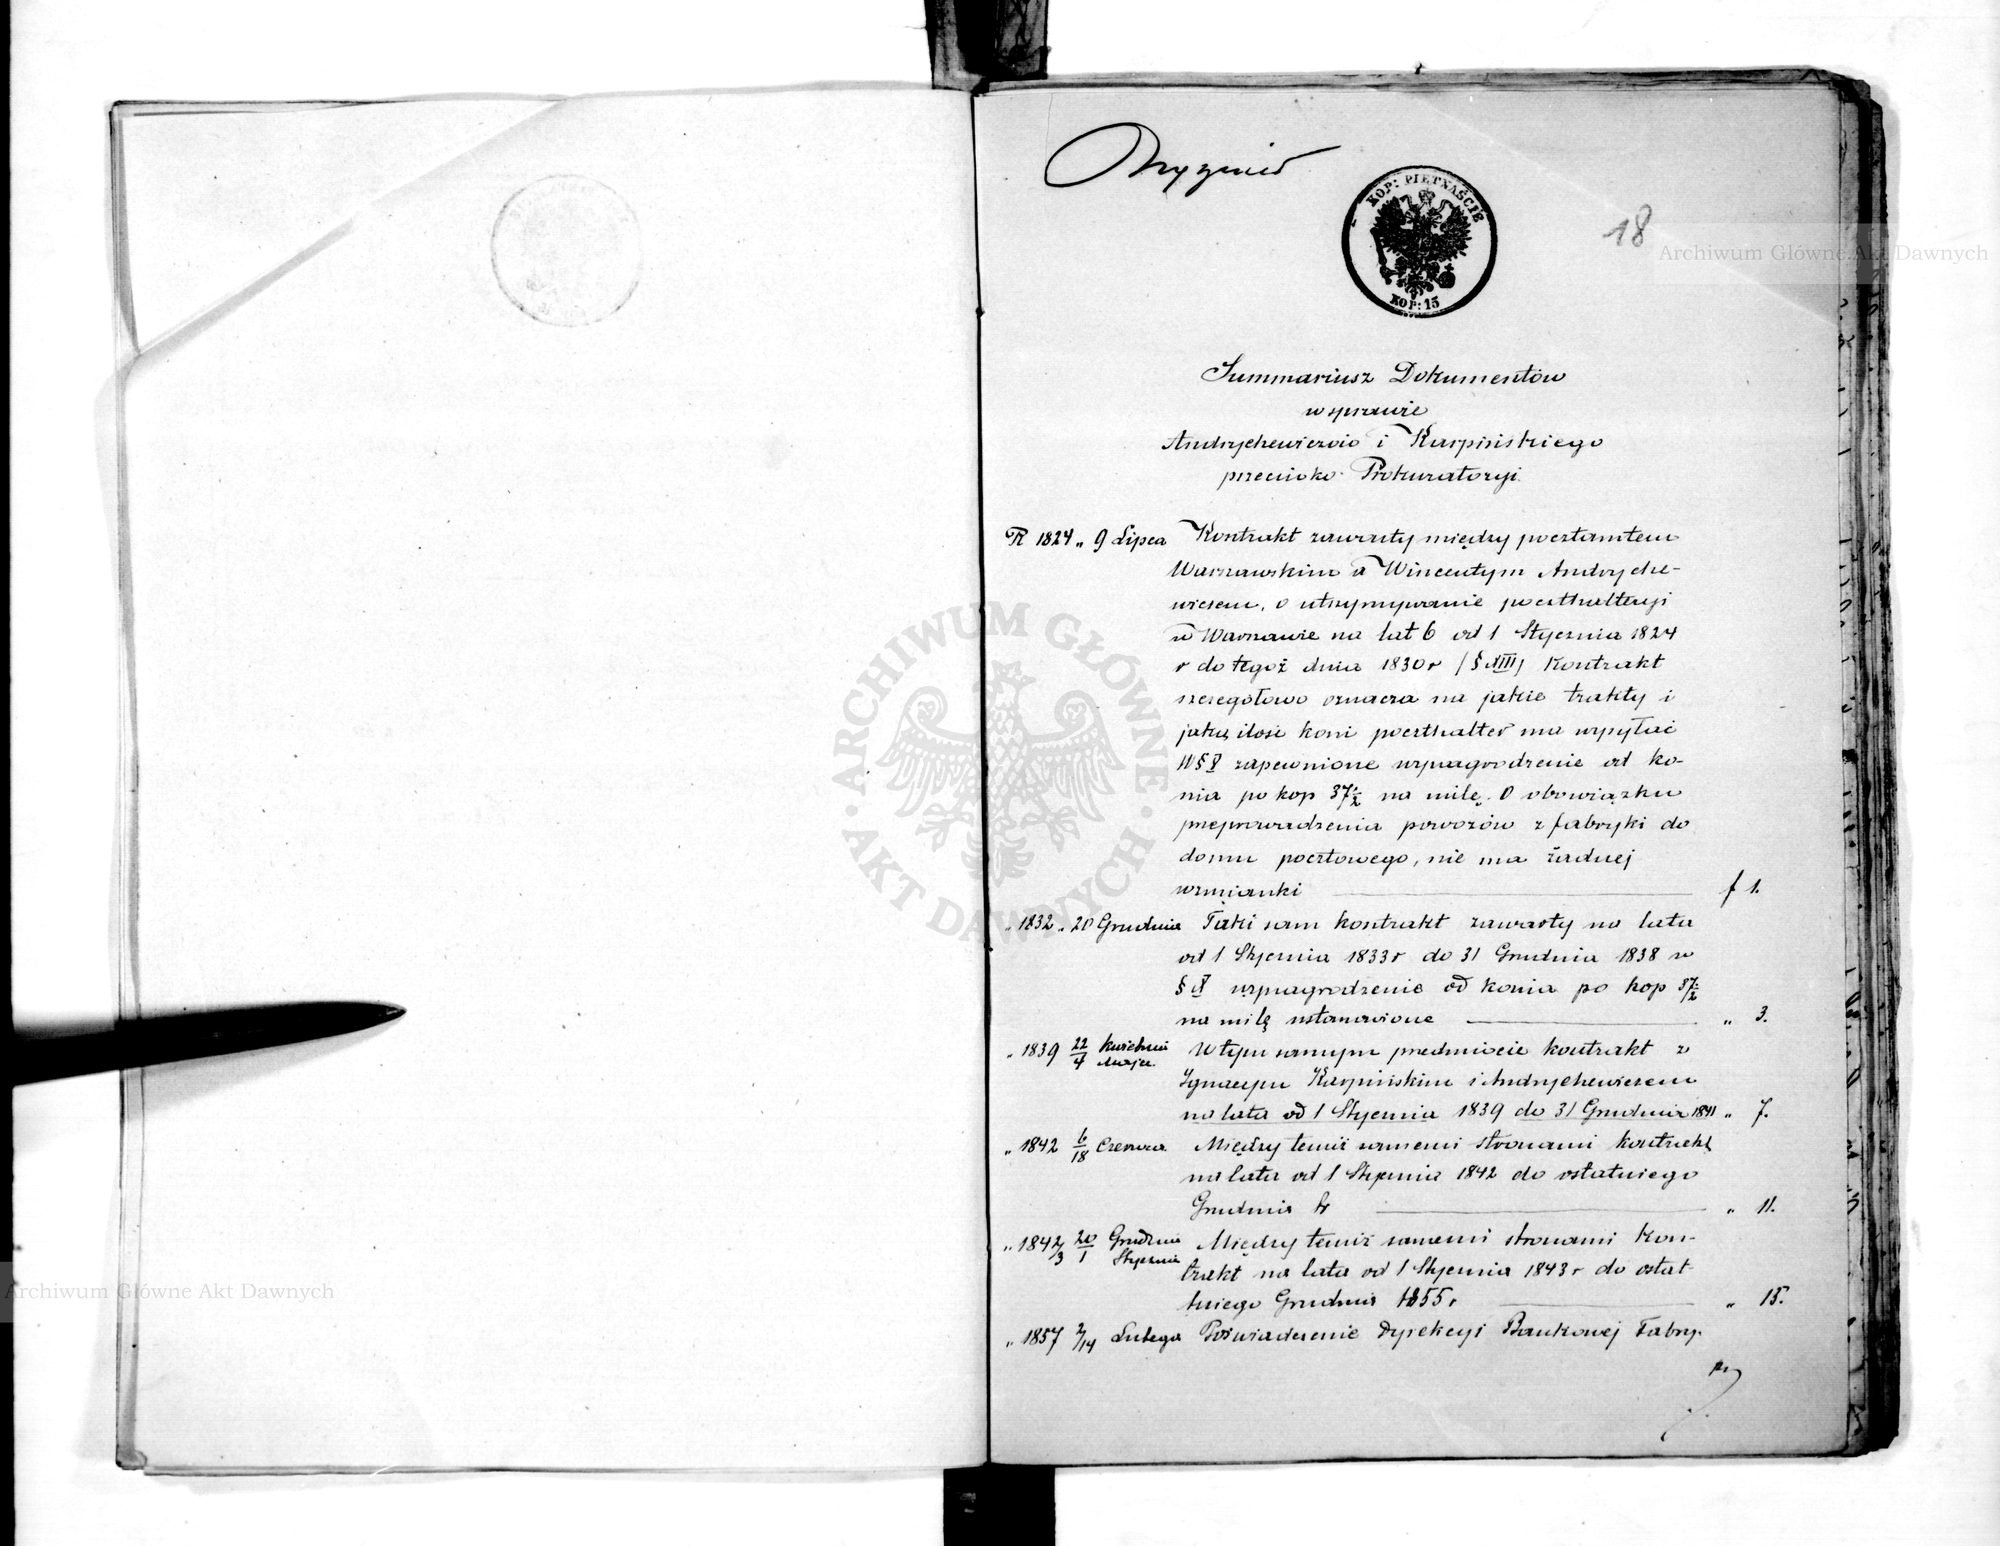 KOP: PIĘTNAŚCIE
KOP: 15
18
Archiwum Główne Akt Dawnych
Summariusz Dokumentów
w sprawie
Andrychewiczów i Karpińskiego
przeciwko Prokuratoryi
R 1824 „ 9 Lipca Kontrakt zawarty między pocztamtem
Warszawskim a Wincentym Andryche-
wiczem, o utrzymywanie poczthalteryi
w Warszawie na lat 6 od 1 Stycznia 1824
r do tegoż dnia 1830 r /§ XIII/ Kontrakt
szczegółowo oznacza na jakie trakty i
jaką ilość koni poczthalter ma wysyłać
W § X zapewnione wynagrodzenie od ko-
nia po kop 37 1/2 na milę. O obowiązku
przeprowadzenia powozów z fabryki do
domu pocztowego, nie ma żadnej
wzmianki f 1.
„ 1832 „ 20 Grudnia Taki sam kontrakt zawarty na lata
od 1 Stycznia 1833 r do 31 Grudnia 1838 w
§ X wynagrodzenie od konia po kop 37 1/2
na milę ustanowione „ 3.
„ 1839 22/4 Kwietnia Maja W tym samym przedmiocie kontrakt z
Ignacym Karpińskim i Andrychewiczem
na lata od 1 Stycznia 1839 do 31 Grudnia 1841 „ 7.
„ 1842 6/18 Czerwca Między temiż samemi stronami kontrakt
na lata od 1 Stycznia 1842 do ostatniego
Grudnia tr „ 11.
„ 1842/3 20/1 Grudnia Stycznia Między temiż samemi stronami Kon-
trakt na lata od 1 Stycznia 1843 r do ostat-
niego Grudnia 1855 r „ 15.
„ 1857 2/14 Lutego Poświadczenie Dyrekcyi Bankowej Fabry-
ARCHIWUM GŁÓWNE · AKT DAWNYCH ·
Archiwum Główne Akt Dawnych